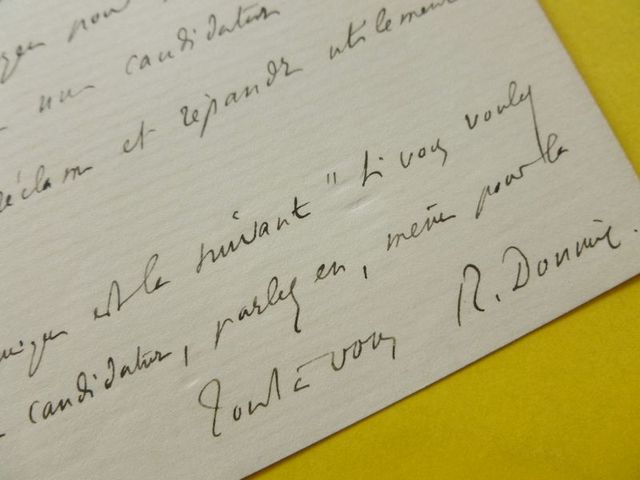 pour
candidature
et répandre utilement
est le suivant " si vous voulez
candidature, parlez en, même pour la
Tout à vous R. Doumic.